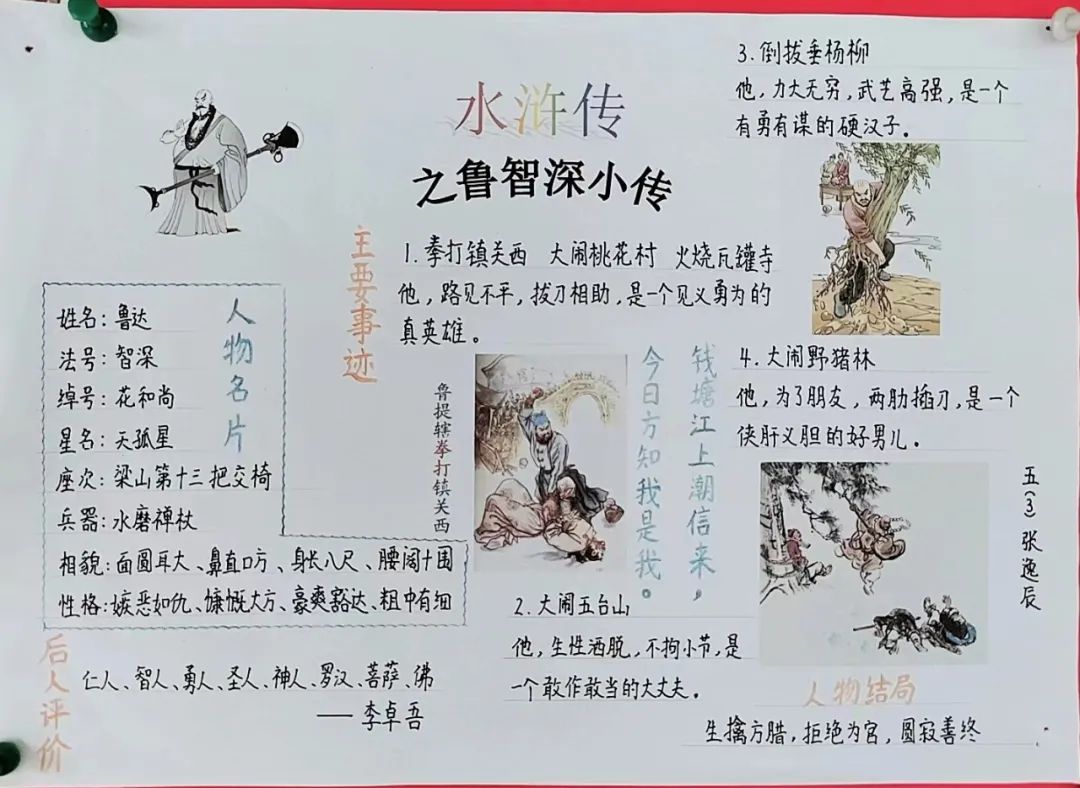 水浒传
之鲁智深小传
人物名片
姓名：鲁达
法号：智深
绰号：花和尚
星名：天孤星
座次：梁山第十三把交椅
兵器：水磨禅杖
相貌：面圆耳大、鼻直口方、身长八尺、腰阔十围
性格：嫉恶如仇、慷慨大方、豪爽豁达、粗中有细
后人评价
仁人、智人、勇人、圣人、神人、罗汉、菩萨、佛
——李卓吾
主要事迹
1.拳打镇关西 大闹桃花村 火烧瓦罐寺
他，路见不平，拔刀相助，是一个见义勇为的
真英雄。
鲁提辖拳打镇关西
钱塘江上潮信来，
今日方知我是我。
2.大闹五台山
他，生性洒脱，不拘小节，是
一个敢作敢当的大丈夫。
3.倒拔垂杨柳
他，力大无穷，武艺高强，是一个
有勇有谋的硬汉子。
4.大闹野猪林
他，为了朋友，两肋插刀，是一个
侠肝义胆的好男儿。
五(3)张逸辰
人物结局
生擒方腊，拒绝为官，圆寂善终